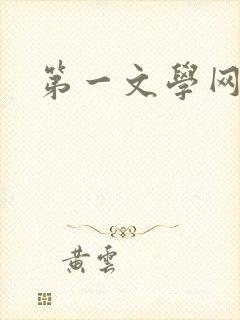 第一文學网
黄雲